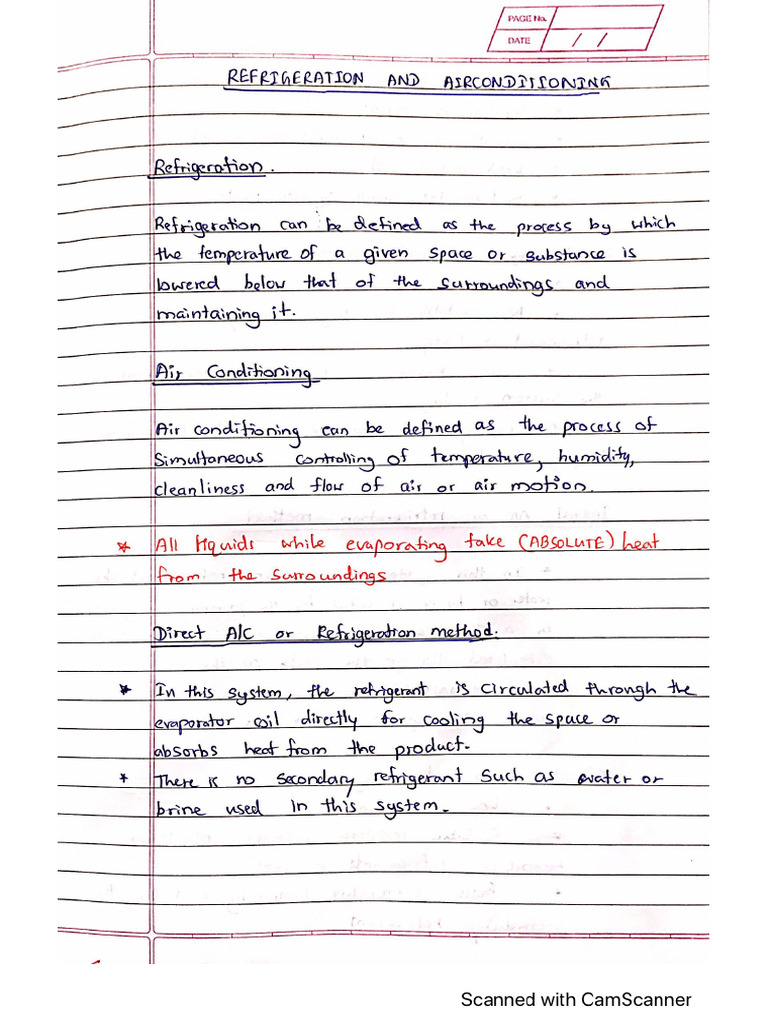 PAGE No.
DATE / /
REFRIGERATION AND AIRCONDITIONING
Refrigeration.
Refrigeration can be defined as the process by which
the temperature of a given space or substance is
lowered below that of the surroundings and
maintaining it.
Air Conditioning
Air conditioning can be defined as the process of
Simultaneous controlling of temperature, humidity,
cleanliness and flow of air or air motion.
* All liquids while evaporating take (ABSOLUTE) heat
from the surroundings
Direct A/C or Refrigeration method.
* In this system, the refrigerant is circulated through the
evaporator coil directly for cooling the space or
absorbs heat from the product.
* There is no secondary refrigerant such as water or
brine used in this system.
Scanned with CamScanner